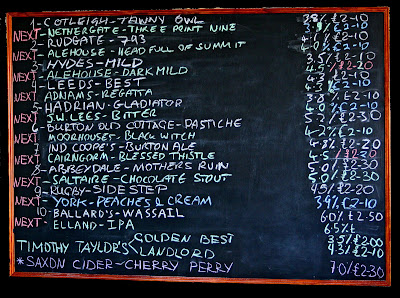 1-COTLEIGH-TAWNY OWL 3.8% £2-10
NEXT-NETHERGATE-THREE POINT NINE 3.9% £2-10
2-RUDGATE-793 4.0% £2-10
NEXT-ALEHOUSE-HEAD FULL OF SUMMIT 4.0% £2-10
3-HYDES-MILD 3.5%
NEXT-ALEHOUSE-DARK MILD
4-LEEDS-BEST 4.3% £2-10
NEXT ADNAMS-REGATTA £2-10
5-HADRIAN-GLADIATOR £2-10
NEXT-J.W. LEES-BITTER £2-10
6-BURTON OLD COTTAGE-PASTICHE 5.2% £2-30
NEXT-MOORHOUSES-BLACK WITCH 4.2% £2-10
7 IND COOPE'S-BURTON ALE 4.8% £2-20
NEXT CAIRNGORM-BLESSED THISTLE 4.5% £2-20
8-ABBEYDALE-MOTHERS RUIN 5.0% £2-30
NEXT-SALTAIRE-CHOCOLATE STOUT £2-30
9-RUGBY-SIDE STEP 4.5% £2-20
NEXT-YORK-PEACHES & CREAM 3.9% £2-10
10-BALLARD'S-WASSAIL 6.0% £2-50
NEXT-ELLAND-IPA 6.5%
TIMOTHY TAYLOR'S GOLDEN BEST 3.5% £2.00
LANDLORD 4.3% £2-10
*SAXON CIDER-CHERRY PERRY 7.0% £2-30